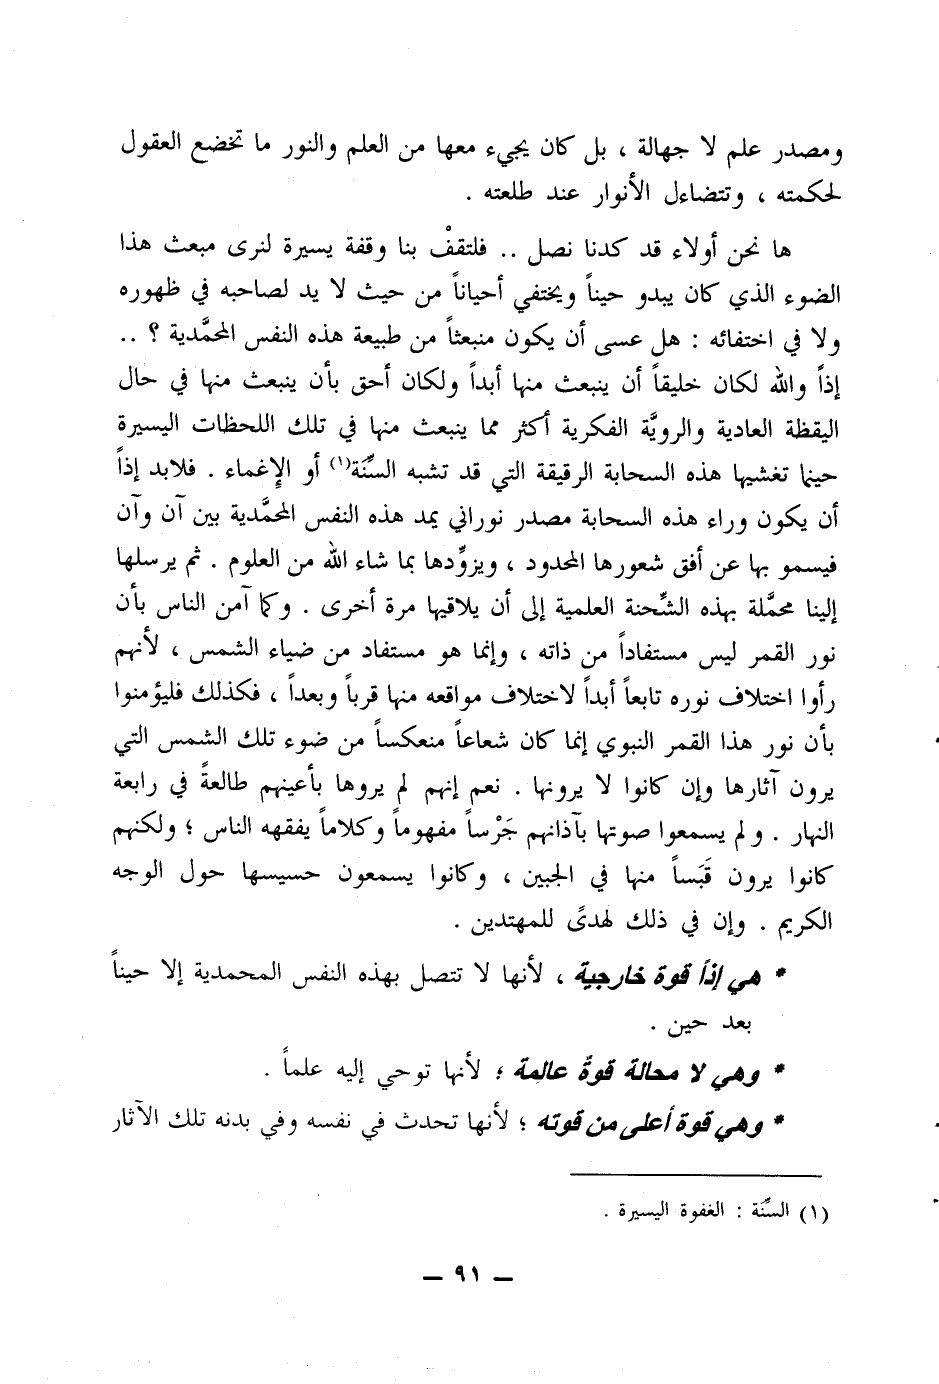 ومصدر علم لا جهالة ، بل كان يجيء معها من العلم والنور ما تخضع العقول
لحكمته ، وتتضاءل الأنوار عند طلعته .
ها نحن أولاء قد كدنا نصل .. فلتقفْ بنا وقفة يسيرة لنرى مبعث هذا
الضوء الذي كان يبدو حيناً ويختفي أحياناً من حيث لا يد لصاحبه في ظهوره
ولا في اختفائه : هل عسى أن يكون منبعثاً من طبيعة هذه النفس المحمَّدية ؟ ..
إذاً والله لكان خليقاً أن ينبعث منها أبداً ولكان أحق بأن ينبعث منها في حال
اليقظة العادية والرويَّة الفكرية أكثر مما ينبعث منها في تلك اللحظات اليسيرة
حينما تغشيها هذه السحابة الرقيقة التي قد تشبه السِّنَة(١) أو الإِغماء . فلابد إذاً
أن يكون وراء هذه السحابة مصدر نوراني يمد هذه النفس المحمَّدية بين آن وآن
فيسمو بها عن أفق شعورها المحدود ، ويزوِّدها بما شاء الله من العلوم . ثم يرسلها
إلينا محمَّلة بهذه الشِّحنة العلمية إلى أن يلاقيها مرة أخرى . وكما آمن الناس بأن
نور القمر ليس مستفاداً من ذاته ، وإنما هو مستفاد من ضياء الشمس ، لأنهم
رأوا اختلاف نوره تابعاً أبداً لاختلاف مواقعه منها قرباً وبعداً ، فكذلك فليؤمنوا
بأن نور هذا القمر النبوي إنما كان شعاعاً منعكساً من ضوء تلك الشمس التي
يرون آثارها وإن كانوا لا يرونها . نعم إنهم لم يروها بأعينهم طالعةً في رابعة
النهار . ولم يسمعوا صوتها بآذانهم جَرْساً مفهوماً وكلاماً يفقهه الناس ؛ ولكنهم
كانوا يرون قَبَساً منها في الجبين ، وكانوا يسمعون حسيسها حول الوجه
الكريم . وإن في ذلك لهدىً للمهتدين .
* هي إذاً قوة خارجية ، لأنها لا تتصل بهذه النفس المحمدية إلا حيناً
بعد حين .
* وهي لا محالة قوةٌ عالمة ؛ لأنها توحي إليه علماً .
* وهي قوة أعلى من قوته ؛ لأنها تحدث في نفسه وفي بدنه تلك الآثار
(١) السِّنَة : الغفوة اليسيرة .
— ٩١ —